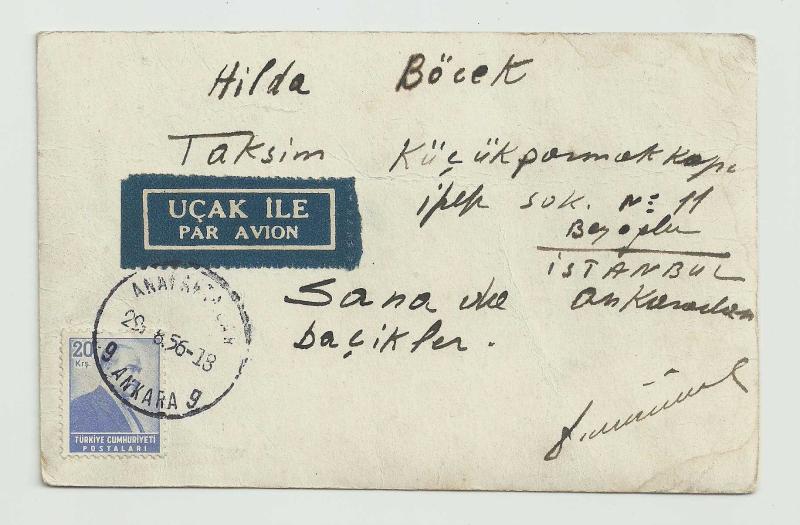 Hilda Böcek
Taksim Küçükparmakkapı
ipek sok. No: 11
Beyoğlu
İSTANBUL
UÇAK İLE
PAR AVION
Sana da Ankaradan
29.8.56-18
9 ANKARA 9
20
Krş.
TÜRKİYE CUMHURİYETİ
POSTALARI